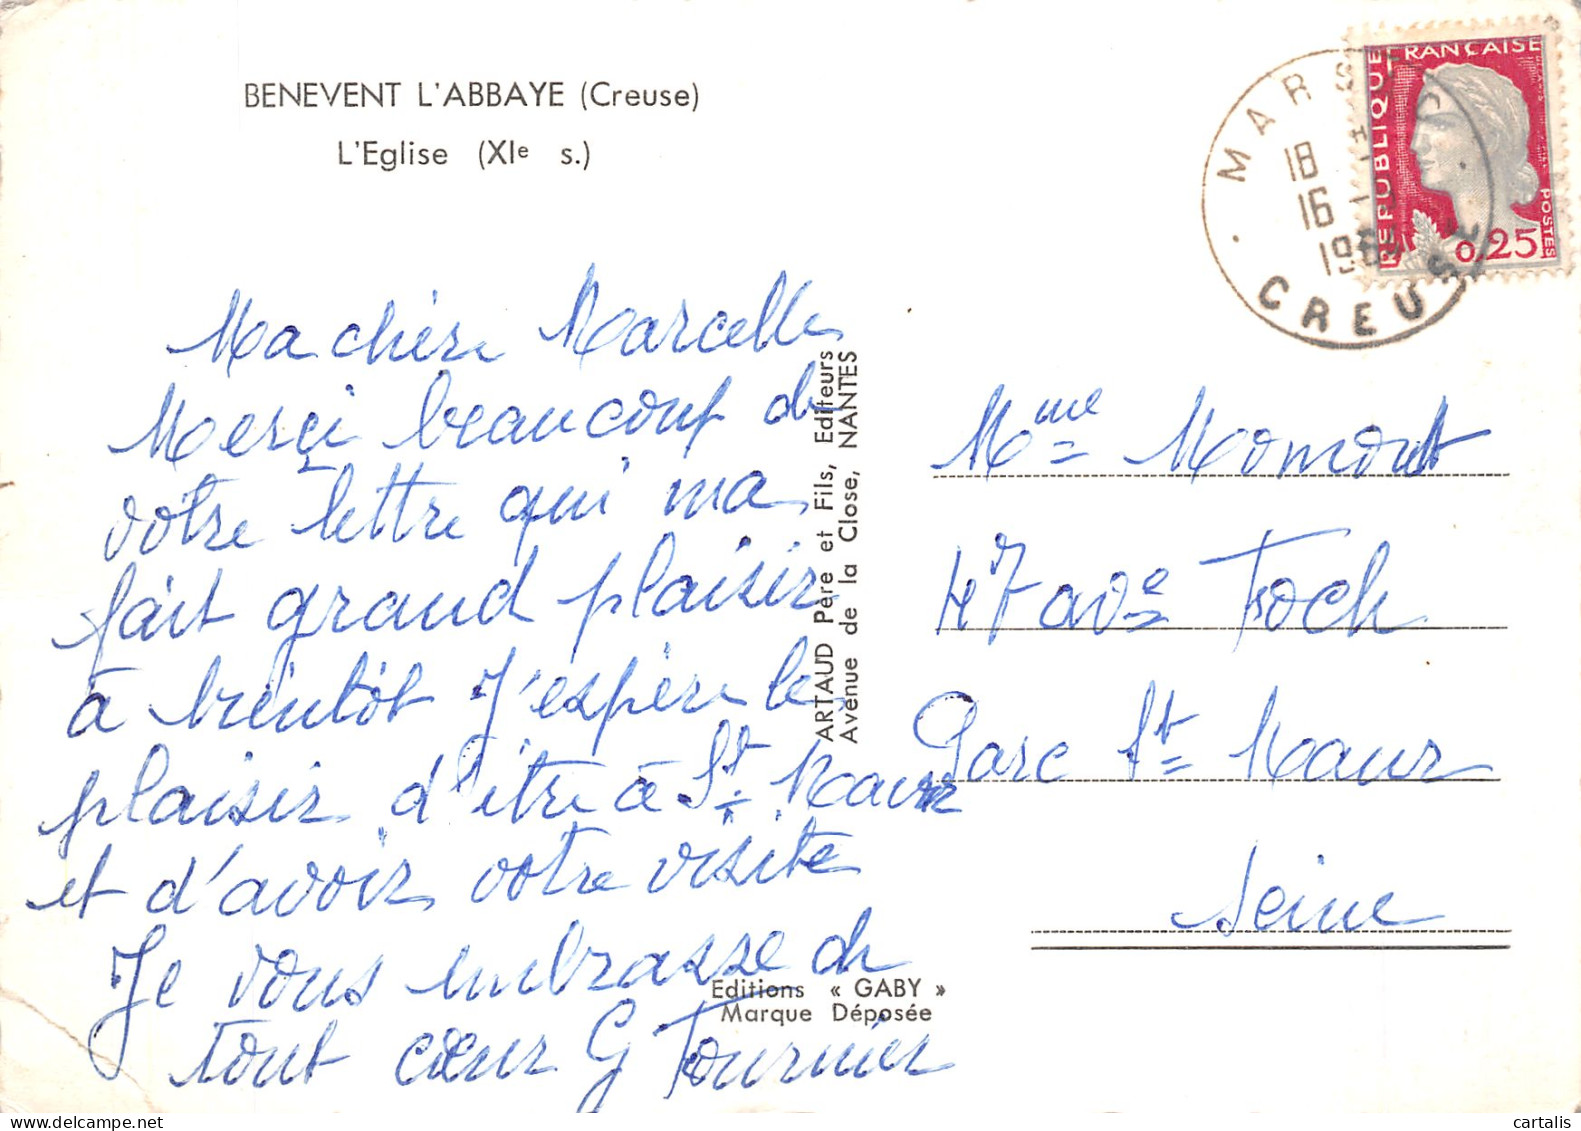 BENEVENT L'ABBAYE (Creuse)
L'Eglise (XIe s.)
Ma chère Marcelle
Merci beaucoup de
votre lettre qui ma
fait grand plaisir
à bientôt J'espère le
plaisir d'être à St Maur
et d'avoir votre visite
Je vous embrasse de
tout cœur G Fournier
ARTAUD Père et Fils, Editeurs
Avenue de la Close, NANTES
Editions « GABY »
Marque Déposée
MARSAC
18 H
16 -
CREUSE
REPUBLIQUE FRANÇAISE
0,25
POSTES
Mme Momont
47 ave Foch
Parc St Maur
Seine
cartalis